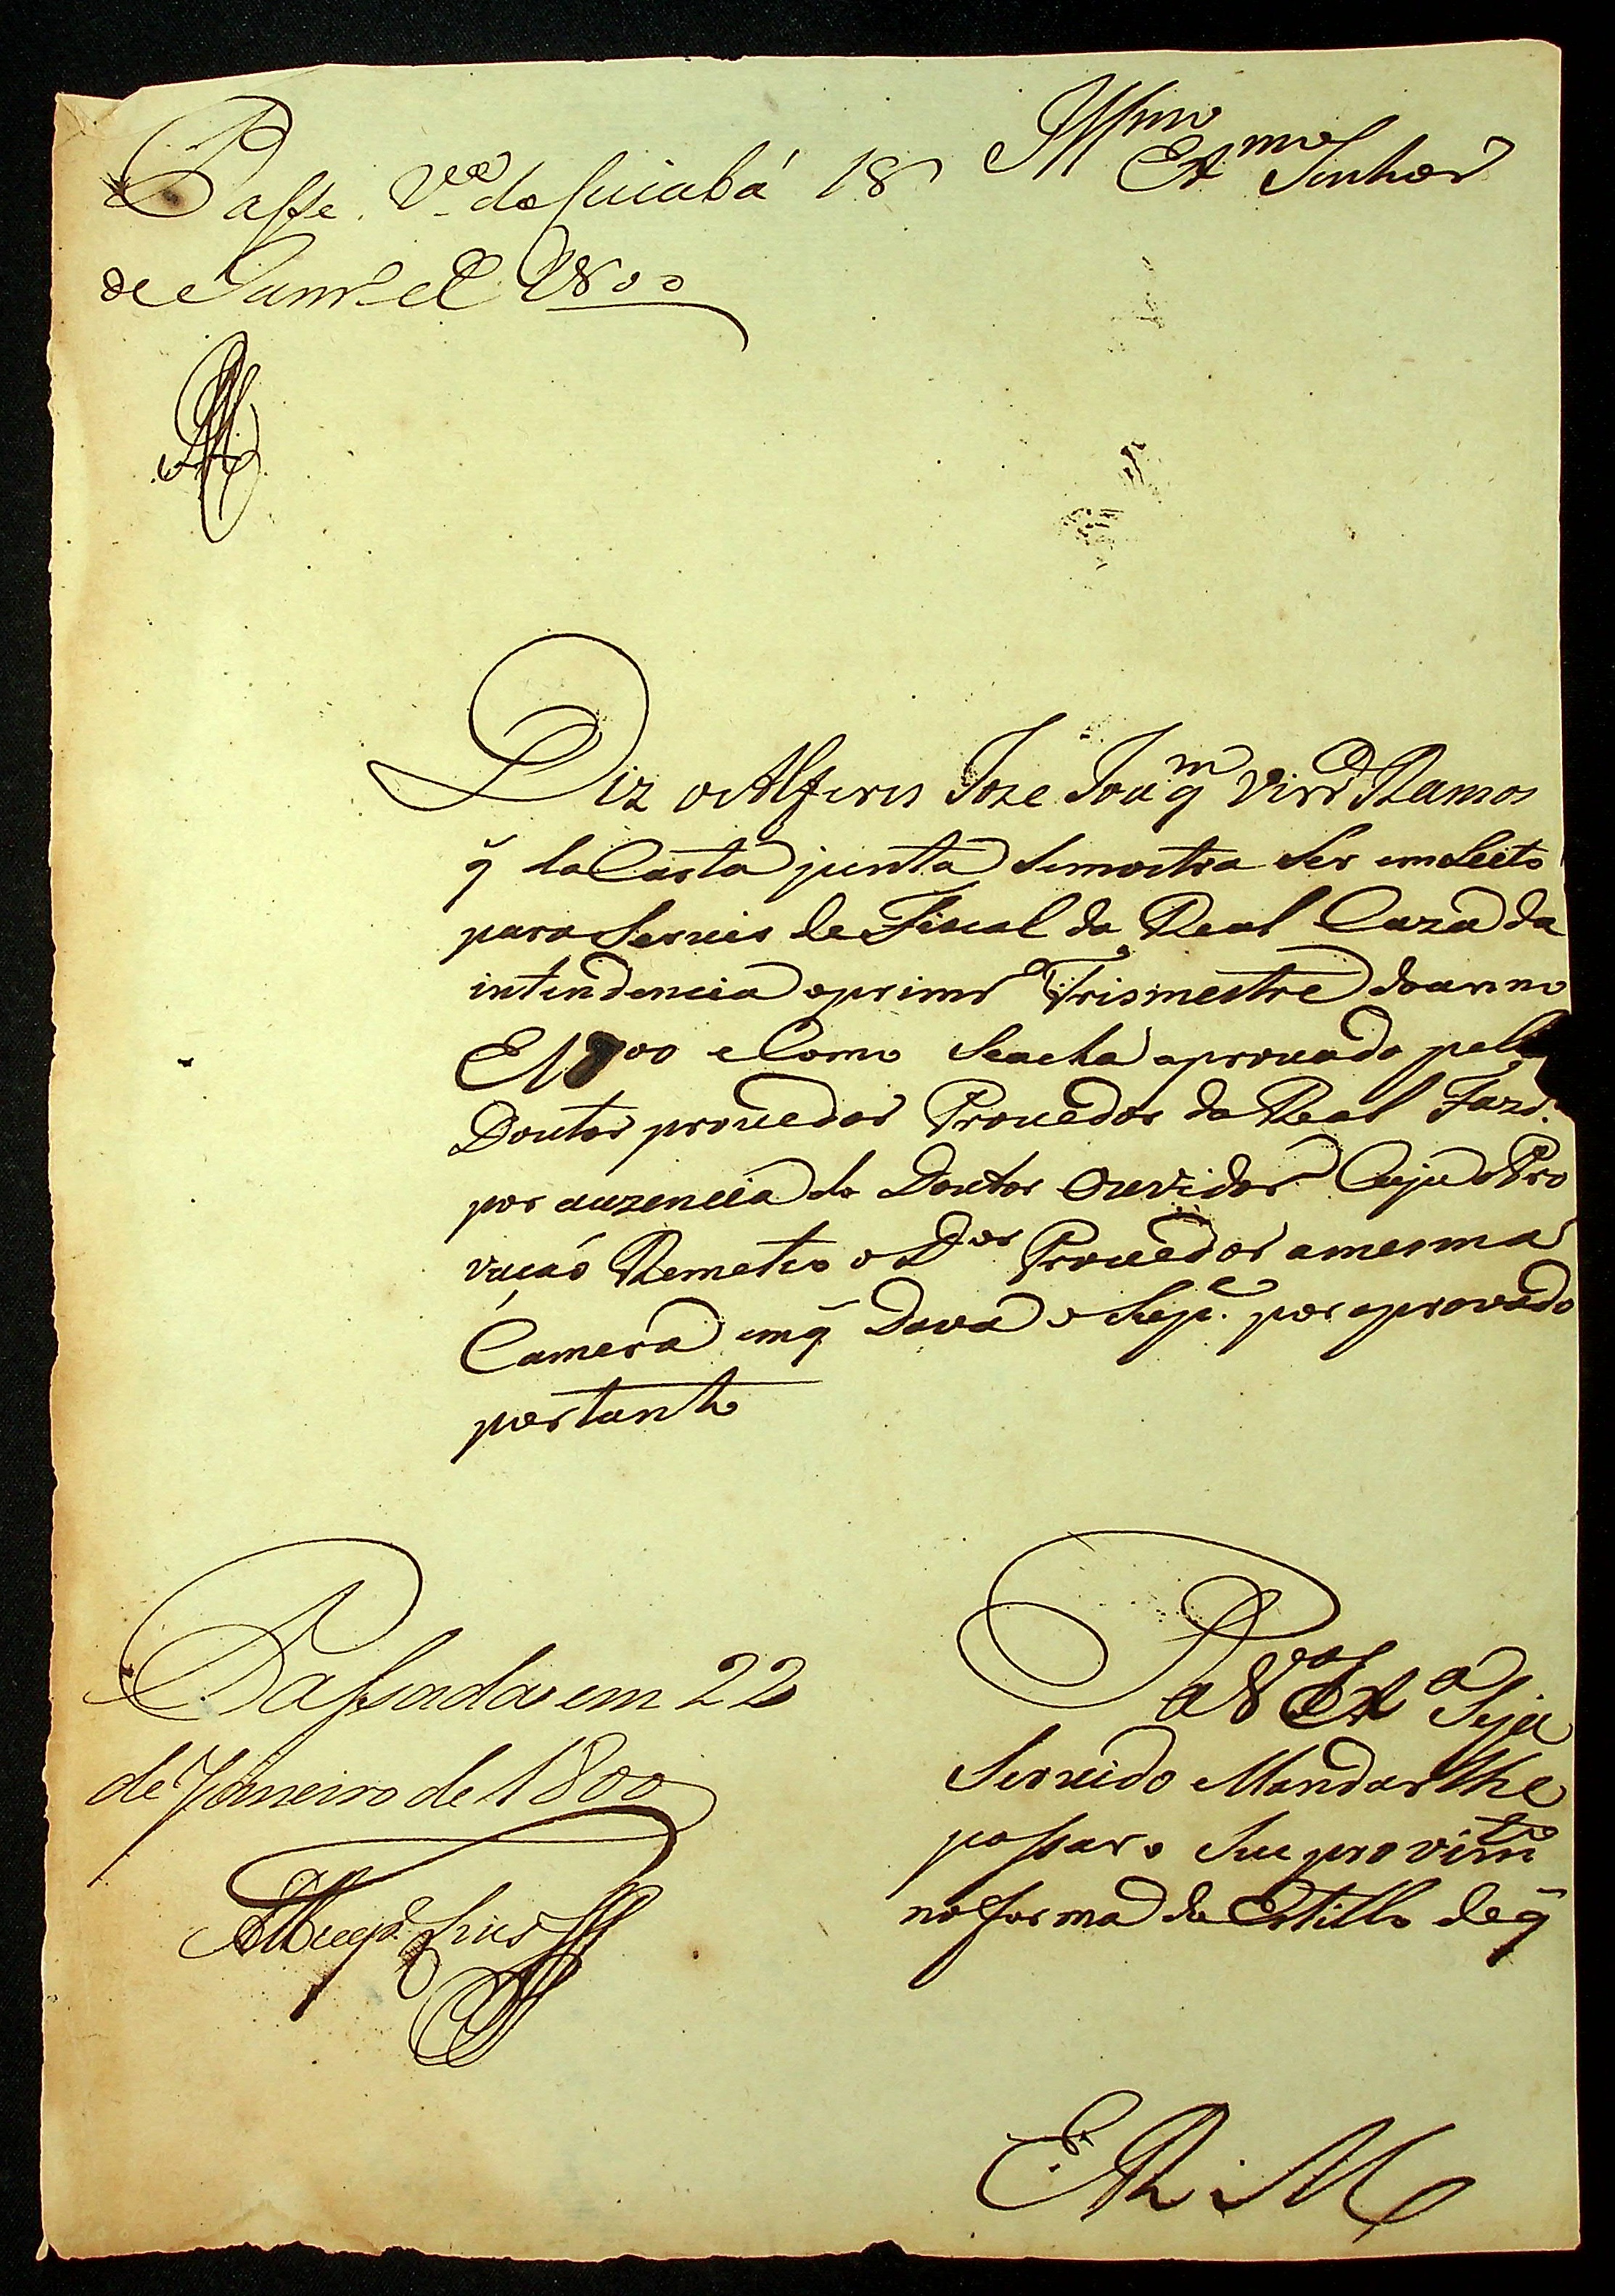 Passe. V.ª do Cuiabá 18
de Janr.º de 1800
Illmo
Exmo Senhor
Diz o Alferes Joze Joaqm Vieirª Ramos
q̃ da Carta junta se mostra ser emLeito
para servir de Fiscal da Real Caza da
intendencia o primrº Trismestre do anno
E 1800 e Como se acha aprovado pelo
Doutor provedor Provedor da Real Fazdª
por auzencia do Doutor Ouvidor Cuja Apro
vação Remeteo o Dor Provedor a mesma
Camera em q̃ Dava o Supe. por aprovado
portanto
Pª VEx.ª Seja
Servido Mandar lhe
passar o Seu provimto
na forma do Estillo de q̃
Passada em 22
de Janeiro de 1800
E. R. M.